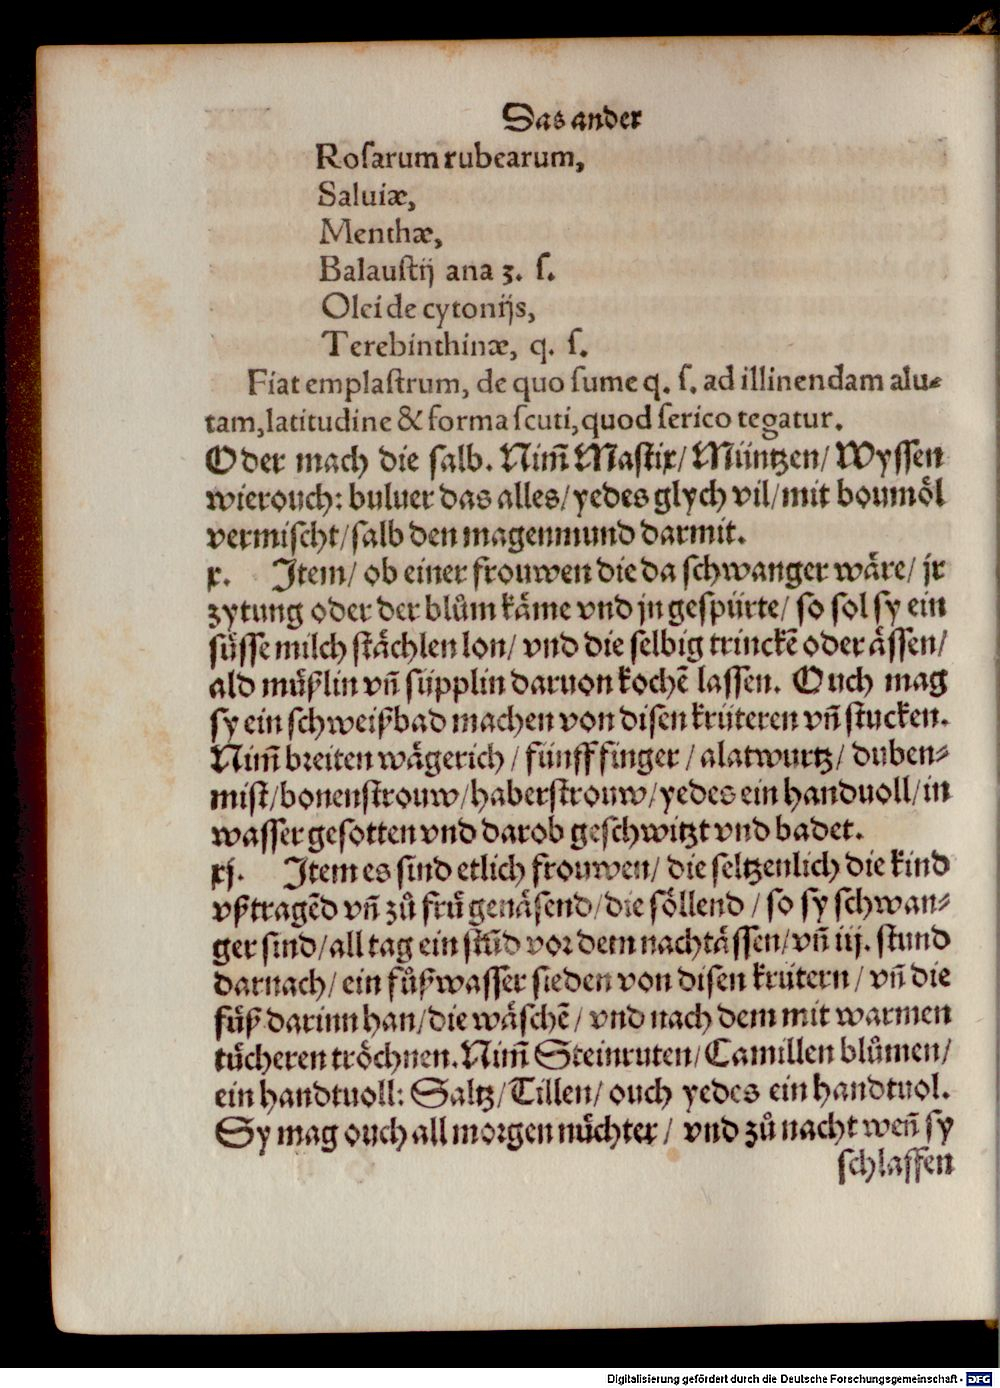 Das ander
Rosarum rubearum,
Saluiæ,
Menthæ,
Balaustij ana ʒ. ſ.
Olei de cytonijs,
Terebinthinæ, q. ſ.
Fiat emplaſtrum, de quo ſume q. ſ. ad illinendam alu⸗
tam, latitudine & forma ſcuti, quod ſerico tegatur.
Oder mach die ſalb. Nim̃ Maſtix/ Müntzen/ Wyſſen
wierouch: buluer das alles/ yedes glych vil/ mit boumöl
vermiſcht/ ſalb den magenmund darmit.
x. Item/ ob einer frouwen die da ſchwanger wäre/ jr
zytung oder der blům käme vnd jn geſpürte/ so sol ſy ein
ſüſſe milch ſtächlen lon/ vnd die ſelbig trinckē oder äſſen/
ald müßlin vñ ſüpplin daruon kochē laſſen. Ouch mag
ſy ein ſchweißbad machen von diſen krüteren vñ ſtucken.
Nim̃ breiten wägerich/ fünfffinger/ alatwurtz/ duben⸗
miſt/ bonenſtrouw/ haberſtrouw/ yedes ein handuoll/ in
waſſer geſotten vnd darob geſchwitzt vnd badet.
xj. Item es ſind etlich frouwen/ die ſeltzenlich die kind
vßtragēd vñ zů frü genäſend/ die ſöllend/ ſo ſy ſchwan⸗
ger ſind/ all tag ein ſtūd vor dem nachtäſſen/ vñ iij. ſtund
darnach/ ein fůßwaſſer ſieden von diſen krütern/ vñ die
füß darinn han/ die wäſchē/ vnd nach dem mit warmen
tücheren tröchnen. Nim̃ Steinruten/ Camillen blůmen/
ein handtuoll: Saltz/ Tillen/ ouch yedes ein handtuol.
Sy mag ouch all morgen nüchter/ vnd zů nacht weñ ſy
ſchlaffen
Digitalisierung gefördert durch die Deutsche Forschungsgemeinschaft - DFG